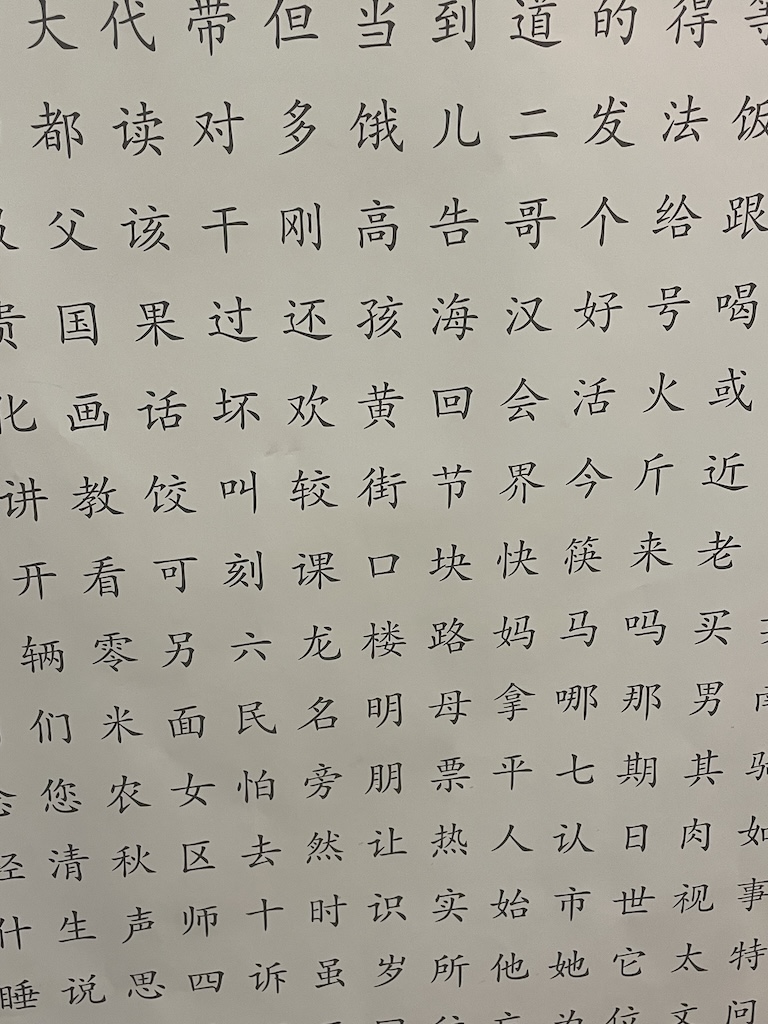 大代带但当到道的得等
都读对多饿儿二发法饭
父该干刚高告哥个给跟
贵国果过还孩海汉好号喝
化画话坏欢黄回会活火或
讲教饺叫较街节界今斤近
开看可刻课口块快筷来老
辆零另六龙楼路妈马吗买
们米面民名明母拿哪那男南
念您农女怕旁朋票平七期其骑
轻清秋区去然让热人认日肉如
什生声师十时识实始市世视事
睡说思四诉虽岁所他她它太特
为位文问